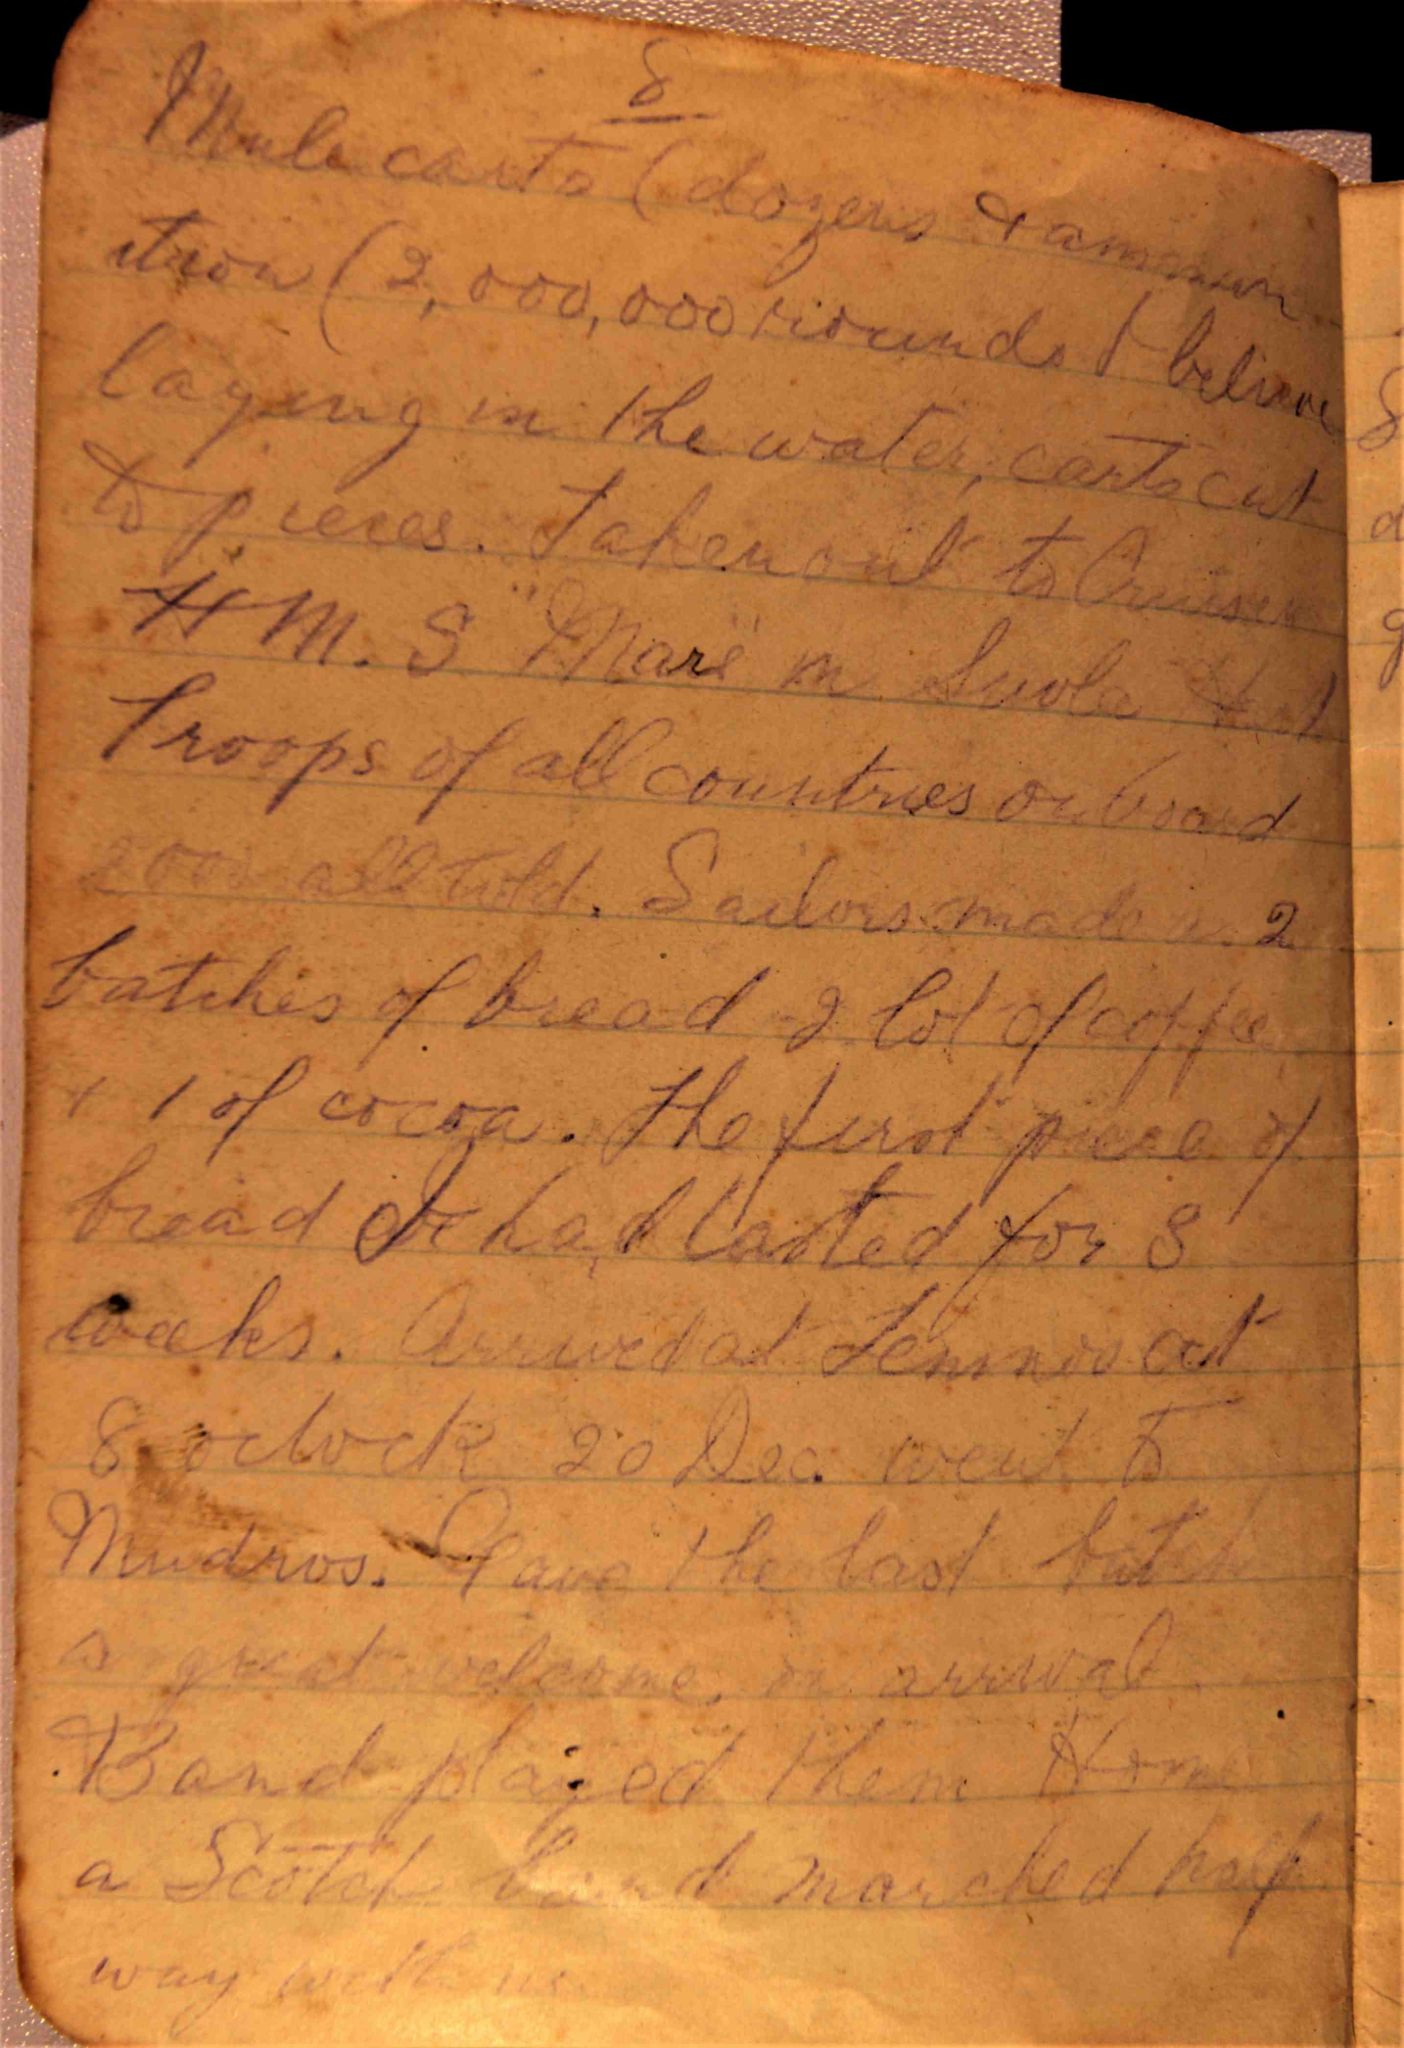 8
Mule carts (dozens & ammun
ition (2,000,000 rounds I believe
laying in the water, carts cut
to pieces. Taken out to Cruiser
H M. S "Mars" in Suvla
Troops of all countries on board
2000 all told. Sailors made us 2
batches of bread 2 lot of coffee
+ 1 of cocoa. The first piece of
bread I had tasted for 8
weeks. Arrived at Lemnos at
8 oclock 20 Dec. went to
Mudros. Gave the last batch
a great welcome on arrival
Band played them Home
a Scotch band marched half
way with us